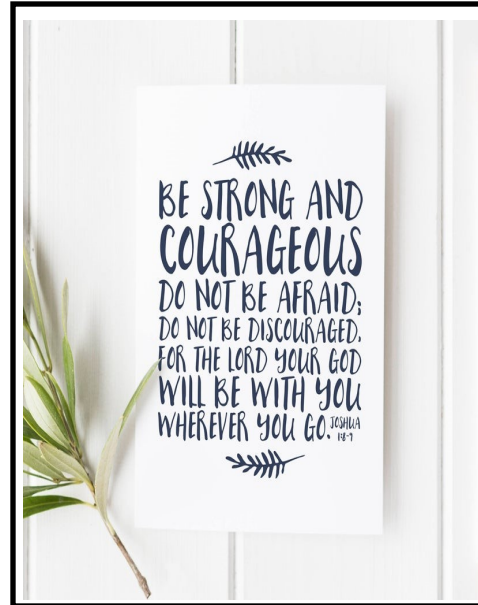 BE STRONG AND
COURAGEOUS
DO NOT BE AFRAID;
DO NOT BE DISCOURAGED,
FOR THE LORD YOUR GOD
WILL BE WITH YOU
WHEREVER YOU GO. JOSHUA
1:8-9